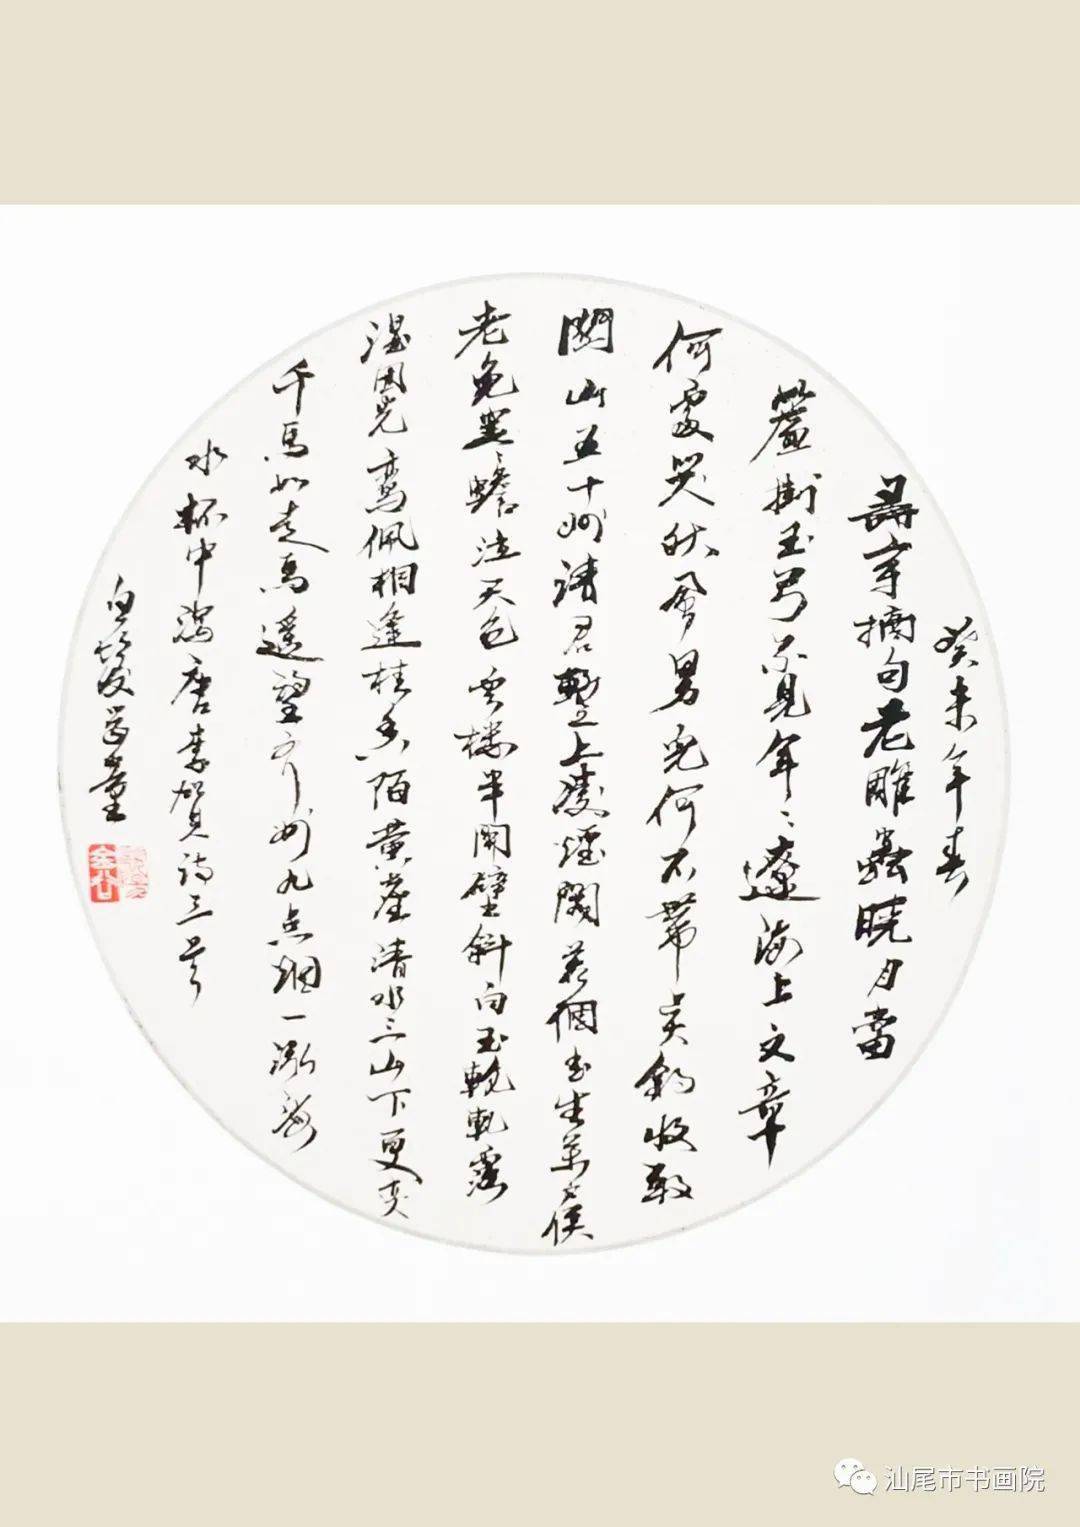 癸未年春
尋章摘句老雕蟲曉月當
簾掛玉弓不見年〻遼海上文章
何處哭秋風男兒何不帶吳鈎收取
關山五十州請君暫上凌煙閣若個書生萬户侯
老兔寒蟾泣天色云樓半開壁斜白玉輪軋露
濕團光鸞佩相逢桂香陌黄塵清水三山下更变
千馬如走馬遥望齐州九点烟一泓海
水杯中瀉唐李賀詩三首
白髮学童
汕尾市书画院